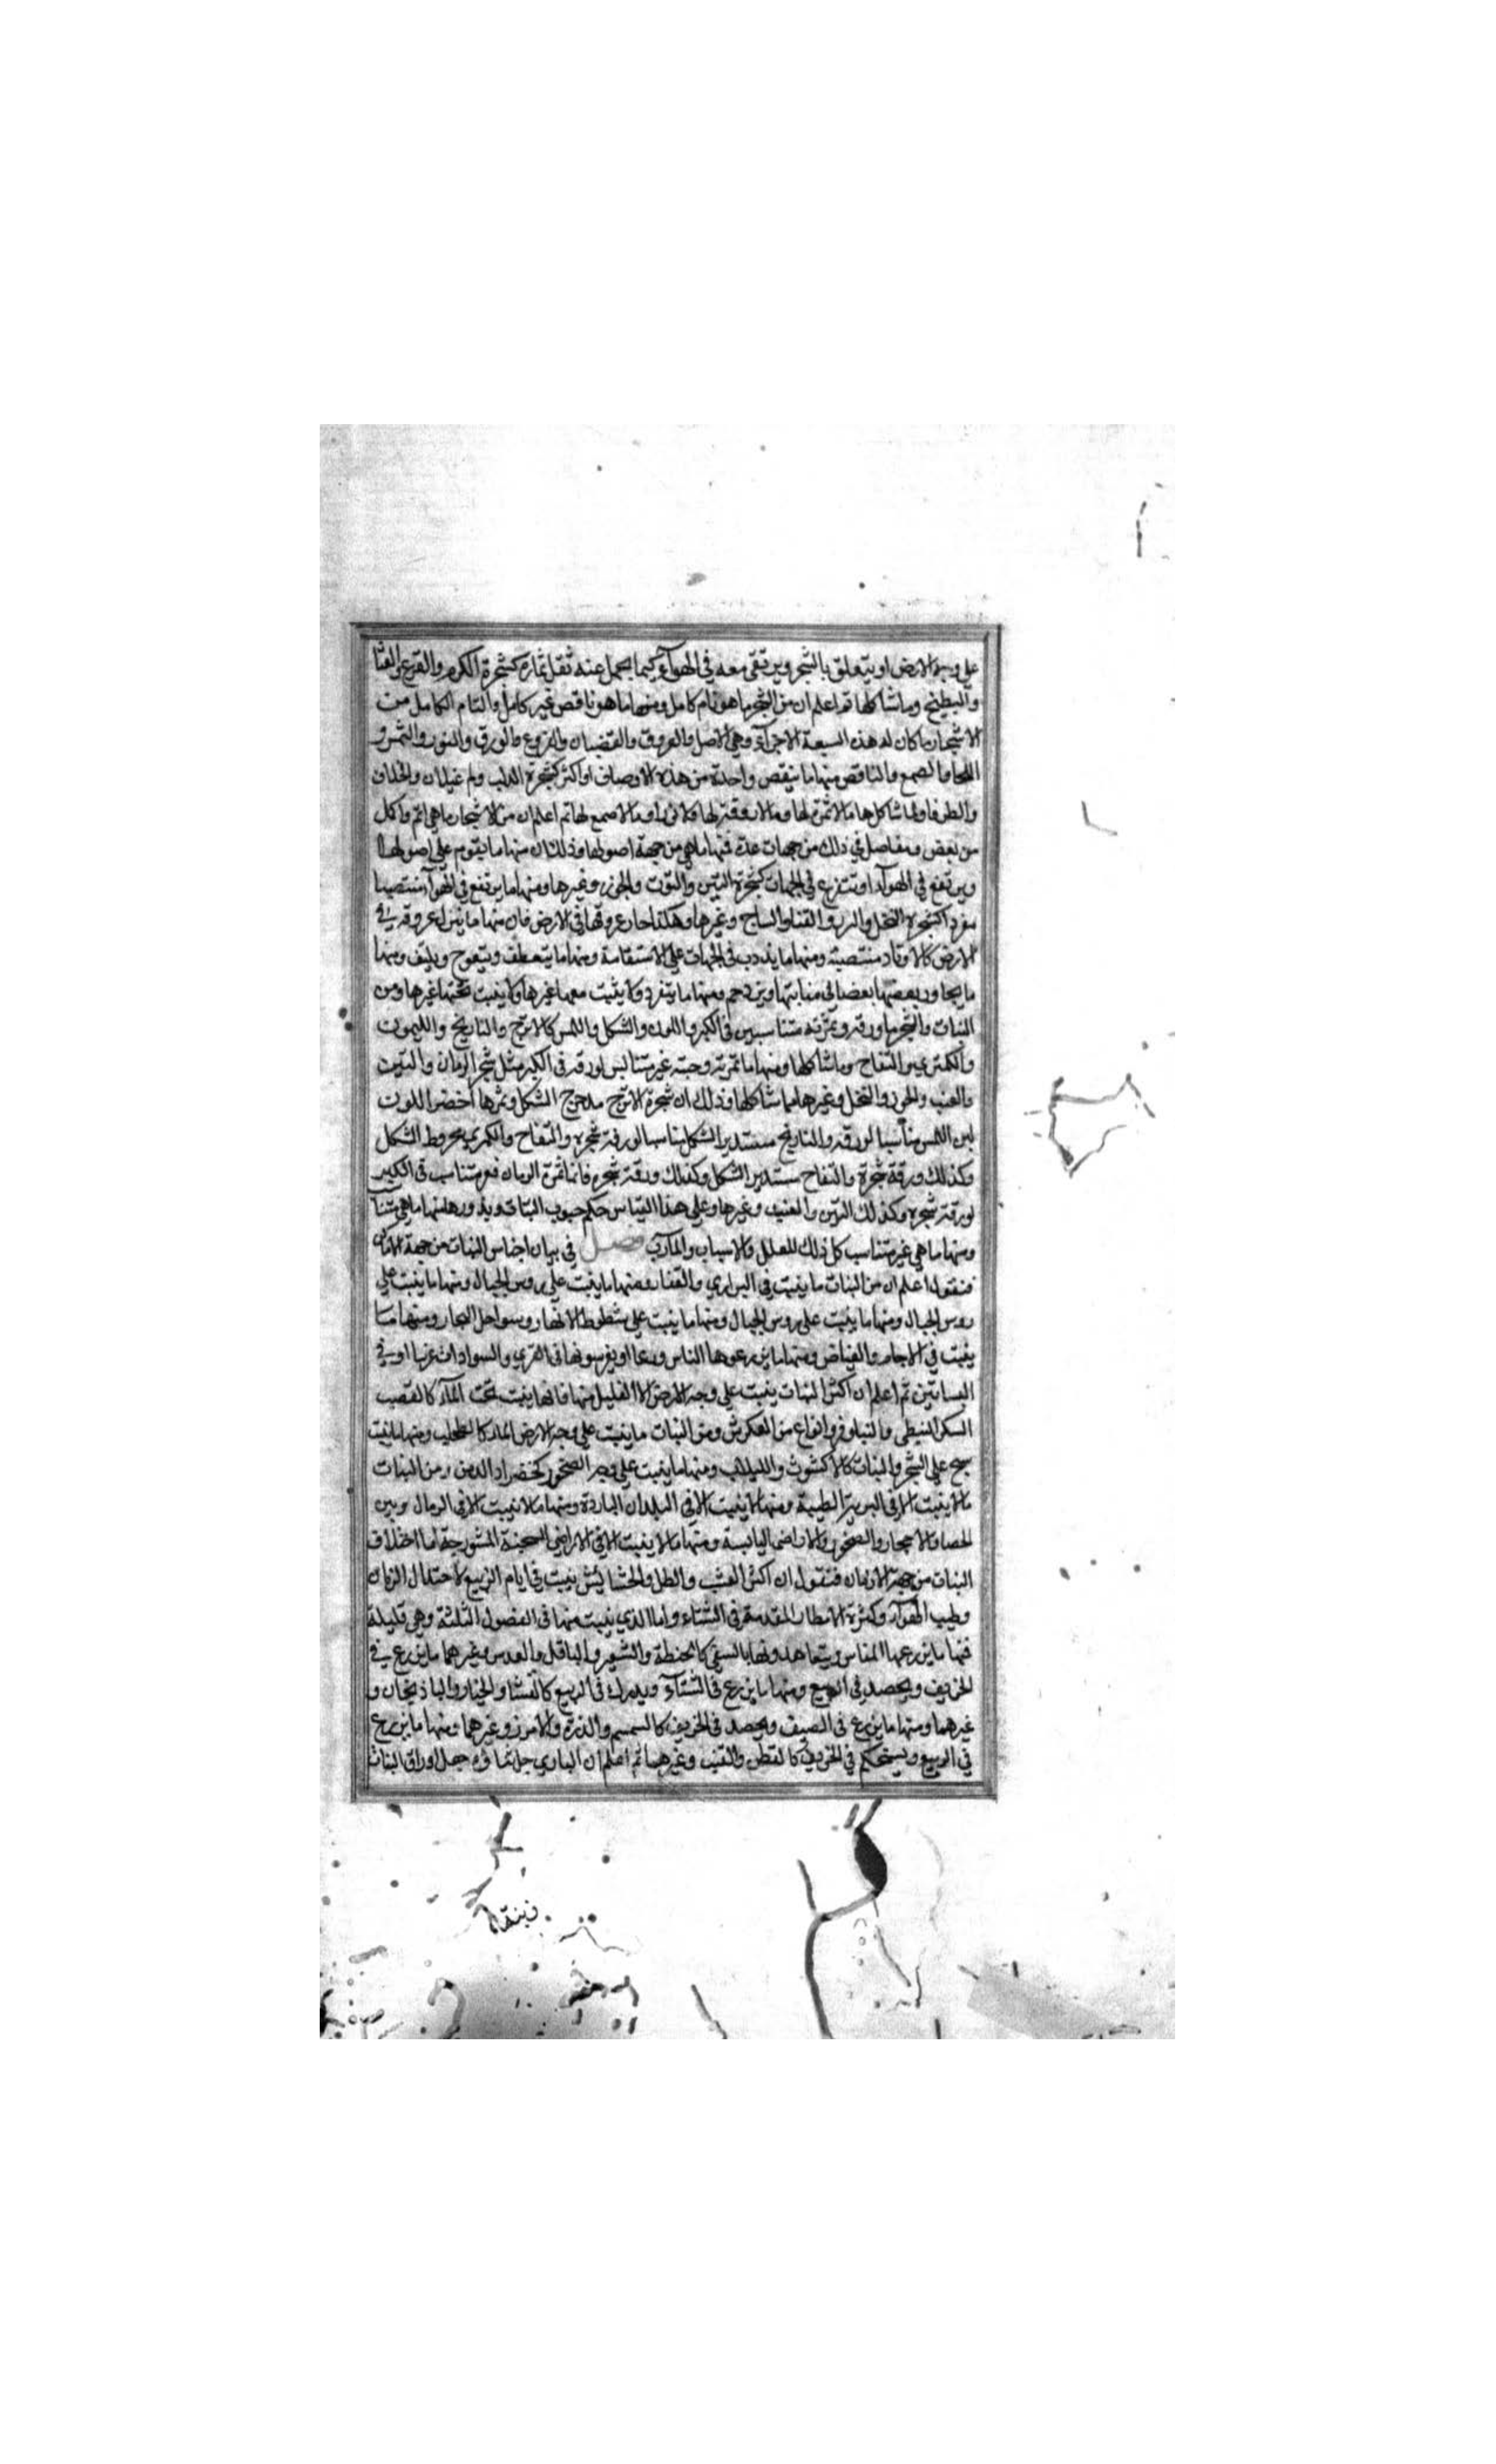 على وجه الارض او يتعلق بالشجر ويرتقى معه في الهوآء كيما يحمل عنه ثقل ثماره كشجرة الكرم والقرع والقثا
والبطيخ وما شاكلها ثم اعلم ان من الشجر ما هو تام كامل ومنها ما هو ناقص غير كامل والتام الكامل من
الاشجار ما كان له هذه السبعة الاجزآء وهي الاصل والعروق والقضبان والفروع والورق والنور والثمر و
اللحا والصمع والناقص منها ما ينقص واحدة من هذه الاوصاف او اكثر كشجرة الدلب وام غيلان والخلاف
والطرفا وما شاكلها مالا ثمرة لها ومالا ورقة لها ومالا صمع لها ثم اعلم ان من الاشجار ما هي اتم واكل
من بعض وتفاصل في ذلك من جهات عدة فمنها ما هي من جهة اصولها وذلك ان منها ما يقوم على اصولها
ويرتفع في الهوآء او تتفرع في الجهات كشجرة التين والتوت والجوز وغيرها ومنها ما يرتفع في الهوآء منتصبا
مفردا كشجرة النخل والسرو والقنا والساج وغيرها وهكذا عروقها في الارض فان منها ما ينزل عروقه في
الارض كالاوتاد منتصبة ومنها ما يذهب في الجهات على الاستقامة ومنها ما يتعطف ويتعوج ويلتف ومنها
ما يجاور بعضها بعضا في منابتها ويزدحم ومنها ما يتفرد ولا يثبت معها غيرها ولا ينبت تحتها غيرها ومن
النبات والشجر ما ورقه وثمرته متناسبين في الكبر واللون والشكل واللمس كالاترج والنارنج والليمون
والكمثرى والتفاح وما شاكلها ومنها ما ثمرته وحبته غير متناسب لورقه في الكبر مثل شجر الرمان والتين
والعنب والجوز والنخل وغيرها مما شاكلها وذلك ان شجرة الاترج مدحرج الشكل وثمرها اخضر اللون
لين اللمس مناسبا لورقه والنارنج مستدير الشكل مناسبا لورقة شجره والتفاح والكمثرى مخروط الشكل
وكذلك ورقة شجرة والتفاح مستدير الشكل وكذلك ورقة شجره فاما ثمرة الرمان فغير متناسب في الكبر
لورقة شجره وكذلك التين والعنب وغيرها وعلى هذا القياس حكم حبوب النبات وبذورها منها ما هي متناسب
ومنها ما هي غير متناسب كل ذلك للعلل والاسباب والمآرب فصل في بيان اجناس النبات من جهة الاماكن
فنقول اعلم ان من النبات ما ينبت في البراري والقفار ومنها ما ينبت على روس الجبال ومنها ما ينبت على
روس الجبال ومنها ما ينبت على روس الجبال ومنها ما ينبت على شطوط الانهار وسواحل البحار ومنها ما
ينبت في الاجام والغياض ومنها ما يزرعوها الناس ويغرسونها في القرى والسوادات او في
البساتين ثم اعلم ان اكثر النبات ينبت على وجه الارض الا القليل منها فانها ينبت تحت المآء كالقصب
السكر النبطى والنيلوفر وانواع من العكرش ومن النبات ما ينبت على وجه الارض الماء كالطحلب ومنها ما ينبت
على الشجر والنبات كالاكشوث واللبلاب ومنها ما ينبت على وجه الصخور كخضراء الدمن ومن النبات
مالا ينبت الا في البرية الطيبة ومنها لا ينبت الا في البلدان الباردة ومنها مالا ينبت الا في الرمال وبين
الحصا والاحجار والصخور والاراضى اليابسة ومنها مالا ينبت الا في الاراضى السبخة المشورجة اما اختلاف
النبات من جهة الازمان فنقول ان اكثر العشب والطل والحشائش ينبت في ايام الربيع لاعتدال الزمان
وطيب الهوآء وكثرة الامطار المقدمة في الشتاء واما الذي ينبت منها في الفصول الثلثة وهي قليلة
فمنها ما يزرعها الناس ويتعاهدونها بالسقى كالحنطة والشعير والباقل والعدس وغيرهما ما يزرع في
الخريف ويحصد في الربيع ومنها ما يزرع في الشتآء ويدرك في الربيع كالقثا والخيار والباذنجان و
غيرهما ومنها ما يزرع في الصيف ويحصد في الخريف كالسمسم والذرة والارز وغيرهما ومنها ما يزرع
في الربيع ويستحكم في الخريف كالقطن والقنب وغيرهما ثم اعلم ان الباري جل ثناؤه جعل اوراق النبات